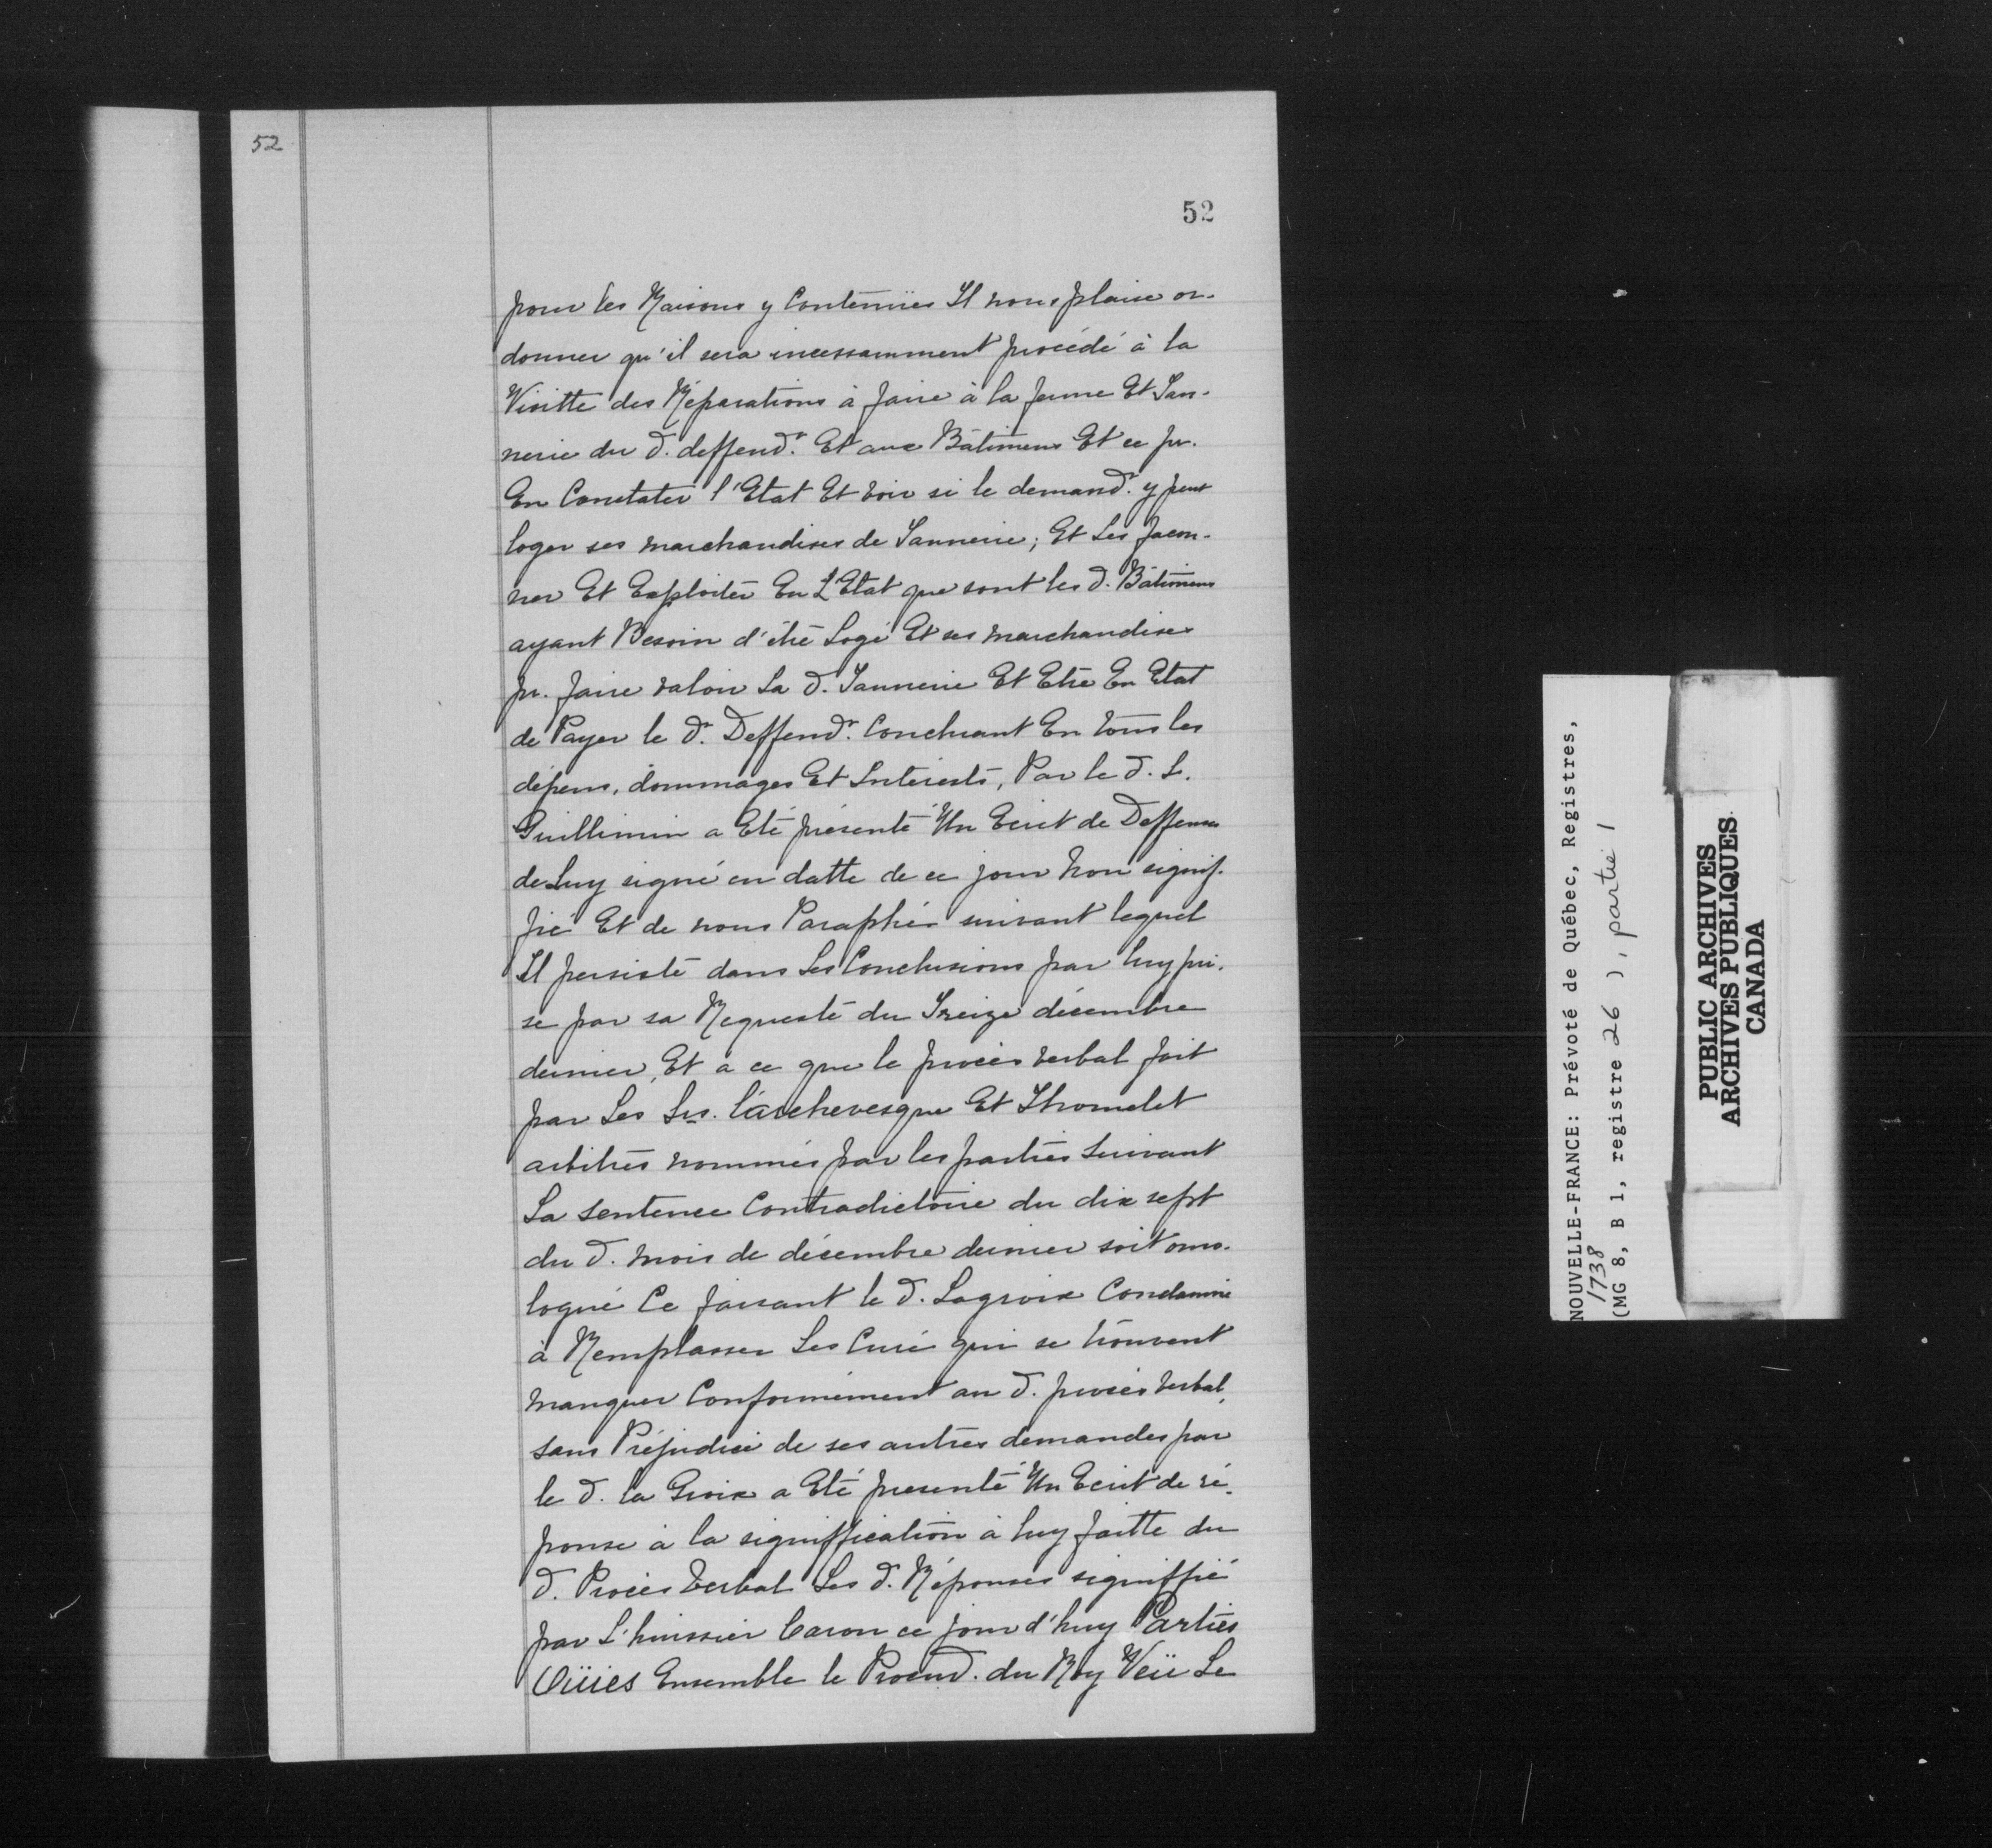 52
52
pour les Raisons y Contenües Il nous plaise or-
donner qu'il sera incessamment procédé à la
Visitte des Réparations à faire à la ferme Et Tan-
nerie du d. deffendr. Et aux Bâtimens Et ce pr.
En Constater l'Etat Et voir si le demandr. y peut
loger ses marchandises de Tannerie; Et Les façon-
ner Et Exploiter En L'Etat que sont les d. Bâtimens
ayant Besoin d'être Logé Et ses marchandises
pr. faire valoir La d. Tannerie Et Etre En Etat
de Payer le dr. Deffendr. Concluant En tous les
dépens, dommages Et Interests, Par le d. S.
Guillimin a Eté présenté Un Ecrit de Deffenses
de Luy signé en datte de ce jour non signif-
fié Et de nous Paraphés suivant lequel
Il persiste dans Les Conclusions par luy pri-
se par sa Requeste du Treize décembre
dernier, Et a ce que le procès verbal fait
par Les Srs. l'archevesque Et Thomelet
arbitres nommés par les parties Suivant
La Sentence Contradictoire du dix sept
du d. mois de décembre dernier soit omo-
logué Ce faisant le d. Lagroix Condamné
à Remplasser Les Cuirs qui se trouvent
manquer Conformément au d. procès verbal,
sans Préjudice de ses autres demandes par
le d. la Groix a Eté presenté Un Ecrit de ré-
ponse à la signiffication à luy faitte du
d. Procès Verbal Les d. Réponses signiffié
par L'huissier Caron ce jour d'huy Parties
Oüies Ensemble le Procur. du Roy Veü Le
NOUVELLE-FRANCE: Prévoté de Québec, Registres,
1738
(MG 8, B 1, registre 26 ), partie 1
PUBLIC ARCHIVES
ARCHIVES PUBLIQUES
CANADA